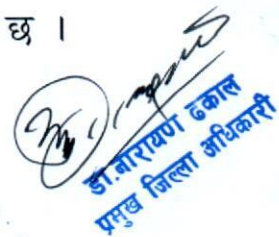 छ ।
डा.नारायण ढकाल
प्रमुख जिल्ला अधिकारी